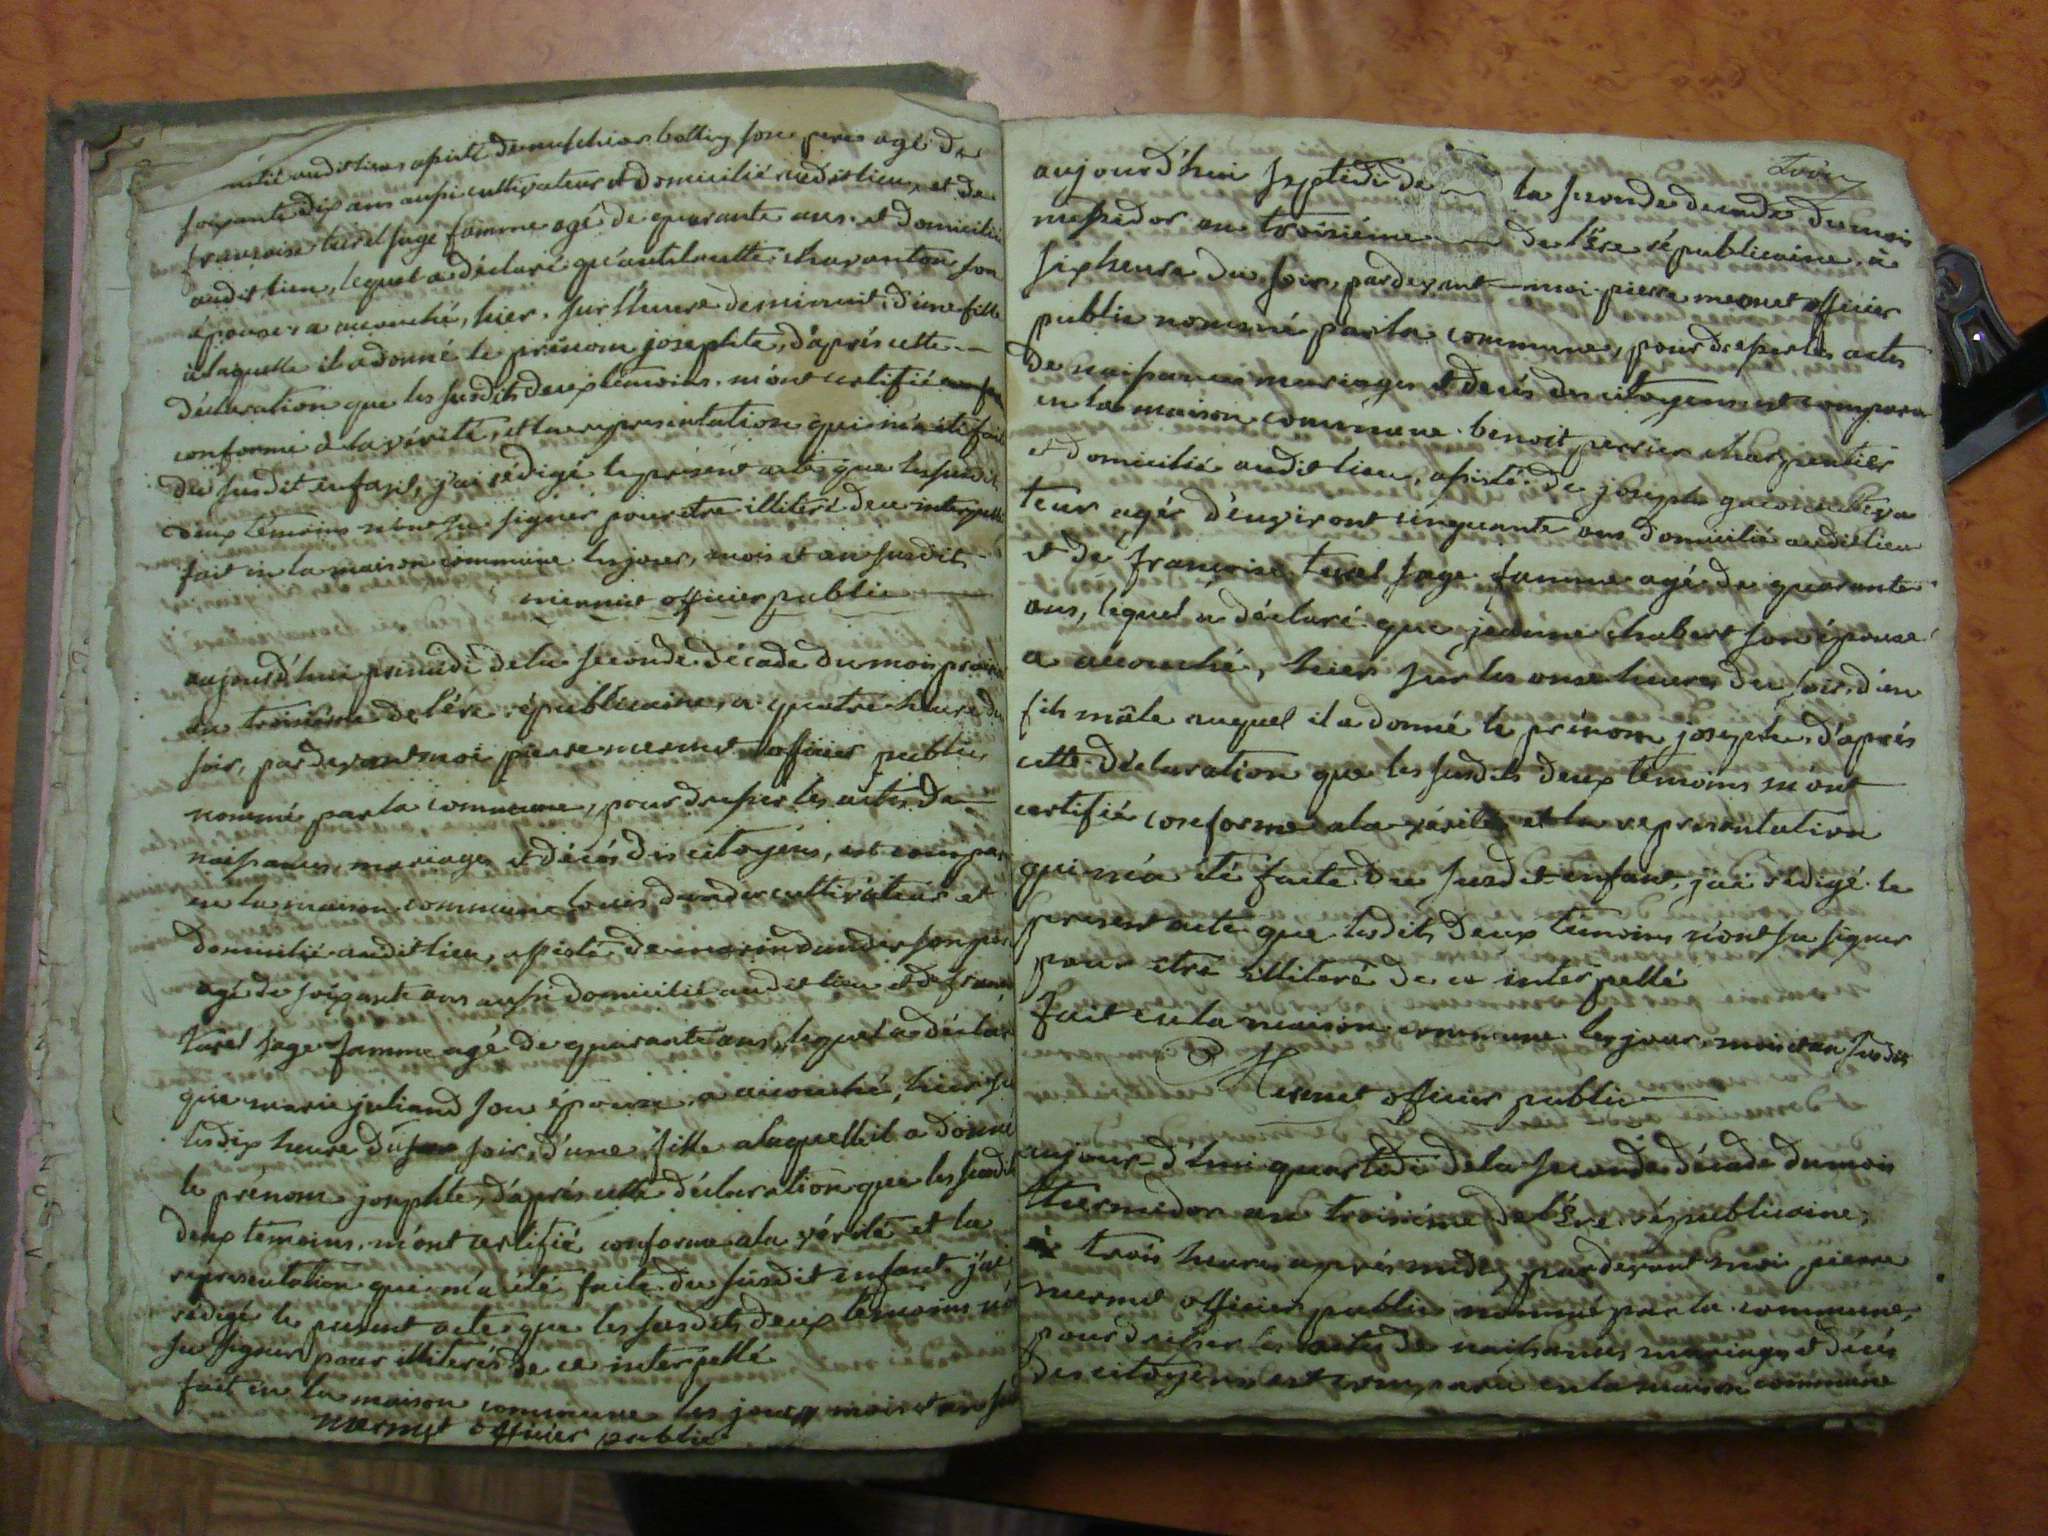 audit lieu, assisté de melchior bottey son pere agé de
soixante dix ans aussi cultivateur et domicilié audit lieu, et de
francoise turel sage famme agé de quarante ans et domicilié
audit lieu, lequel a déclaré qu'antilaette charanton son
épouse a acouché, hier, sur l'heure de minuit, d'une fille
a laquelle il a donné le prénom josephte, d'après cette
déclaration que les susdits deux temoins m'ont certifié
conforme à la vérité, et la representation qui m'a été fait
du susdit enfant, j'ai rédigé le présent acte, que les susdit
deux témoins n'ont su signer pour etre illiteré de ce interpellé
fait en la maison commune les jour, mois et an susdit
mermet officier public
aujourd'hui primidi de la seconde décade du mois
an troisieme de l'ére républicaine, a quatre heure du
soir, pardevant moi pierre mermet officier public
nommé par la commune, pour dresser les actes de
naissances, mariages et décés des citoyens, est comparu
en la maison commune louis dander cultivateur et
domicilié audit lieu, assisté de marin dander son pere
agé de soixante ans aussi domicilié audit lieu et de franç
turel sage famme agé de quarante ans, lequel a déclaré
que marie juliand son épouse, a acouché, hier su
les dix heure du soir, d'une fille a laquelle il a donné
le prénom josephte, d'après cette déclaration que les susdit
deux temoins, m'ont certifié conforme a la vérité et la
representation qui m'a été faite du susdit enfant j'ai
rédigé le present acte, que les susdits deux temoins n'o
su signer pour illiterés de ce interpellé
fait en la maison commune les jour mois et an sus
mermet officier public
aujourd'hui septidi de la seconde decade du mois
messidor an troisiéme de l'Ere républicaine, à
six heure du soir, pardevant moi pierre mermet officier
public nommé par la commune, pour dresser les actes
de naissances mariages et decés des citoyens est comparu
en la maison commune benoit perrier charpentier
et domicilié audit lieu, assisté de joseph cultiva
teur agés d'environt cinquante ans domicilié audit lieu
et de françoise turel sage famme agé de quarante
ans, lequel a déclaré que jeanne chabert son épouse
a acouché, hier sur les onse heures du soir, d'un
fils mâle auquel il a donné le prénom joseph, d'après
cette déclaration que les susdits deux temoins m'ont
certifié conforme a la vérité et la representation
qui m'a été faite du susdit enfant, j'ai rédigé le
present acte que lesdits deux témoins n'ont su signer
pour etre illiteré de ce interpellé
fait en la maison commune les jour mois et an susdit
Mermet officier public
aujour-d'hui quartodi de la seconde décade du mois
thermidor an troisiéme de l'Ére républicaine,
à trois heures aprés midi, pardevant moi pierre
mermet officier public nommé par la commune,
pour dresser les actes de naissances mariages et décés
des citoyens est comparu en la maison commune